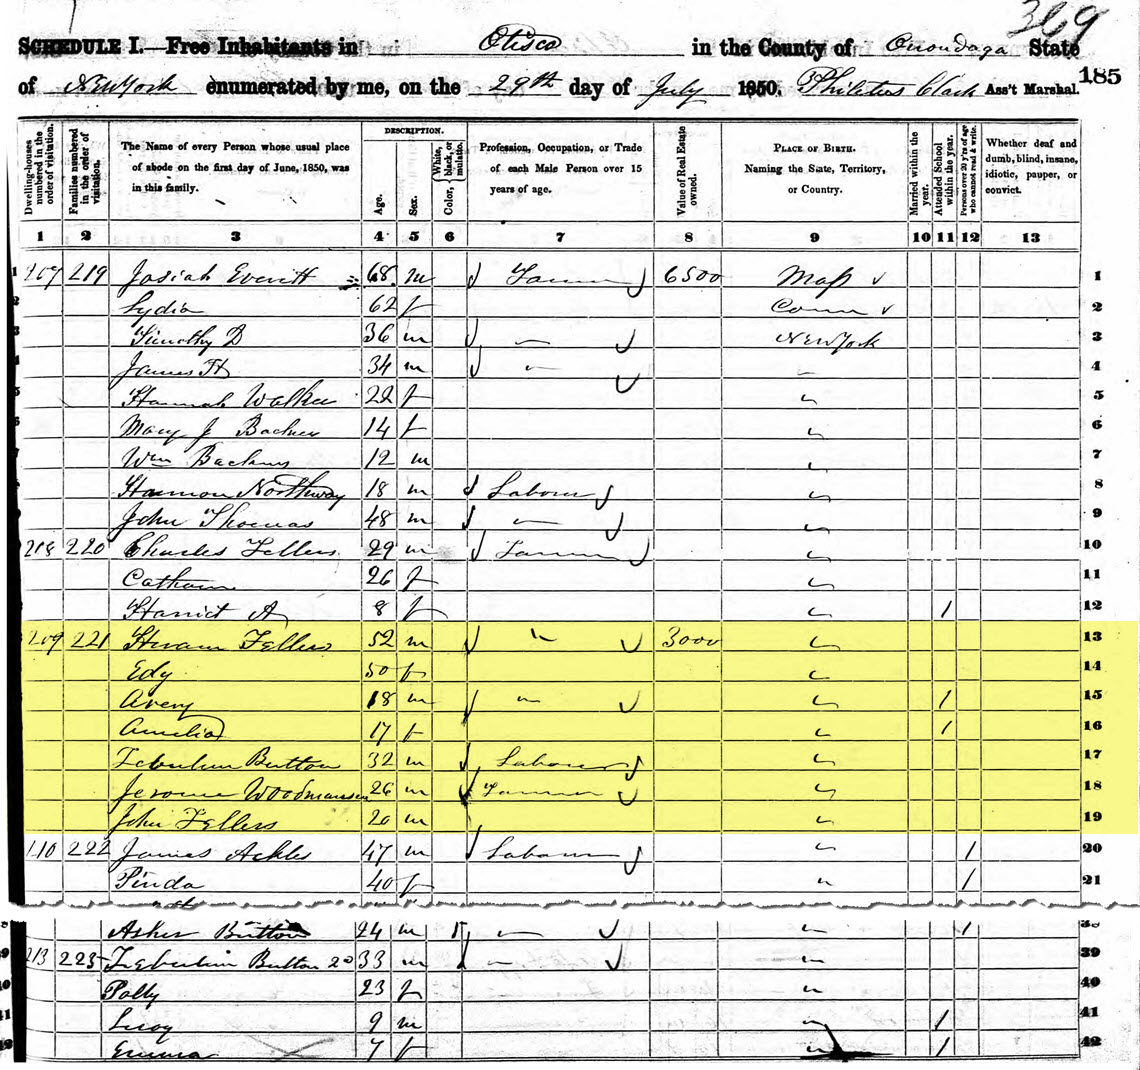 369
SCHEDULE I.—Free Inhabitants in Otisco in the County of Onondaga State
185
of New York enumerated by me, on the 29th day of July 1850. Philetus Clark Ass't Marshal.
Dwelling-houses numbered in the order of visitation.
Families numbered in the order of visitation.
The Name of every Person whose usual place of abode on the first day of June, 1850, was in this family.
DESCRIPTION.
Age.
Sex.
Color, White, black, or mulatto.
Profession, Occupation, or Trade of each Male Person over 15 years of age.
Value of Real Estate owned.
PLACE OF BIRTH. Naming the State, Territory, or Country.
Married within the year.
Attended School within the year.
Persons over 20 y'rs of age who cannot read & write.
Whether deaf and dumb, blind, insane, idiotic, pauper, or convict.
1 2 3 4 5 6 7 8 9 10 11 12 13
1 207 219 Josiah Everitt 68 m Farmer 6500 Mass 1
2 Lydia 62 f Conn 2
3 Timothy D 36 m " New York 3
4 James H 34 m " " 4
5 Hannah Walker 22 f " 5
6 Mary J Backus 14 f " 6
7 Wm Backus 12 m " 7
Harmon Northway 18 m Laborer " 8
John Thomas 48 m " " 9
208 220 Charles Fellers 29 m Farmer " 10
Catharine 26 f " 11
Harriet A 8 f " 1 12
209 221 Hiram Fellers 52 m " 3000 " 13
Edy 50 f " 14
Avery 18 m " " 1 15
Amelia 17 f " 1 16
Zebulun Button 32 m Laborer " 17
Jerome Woodmansee 26 m Farmer " 18
John Fellers 20 m " 19
110 222 James Ackles 47 m Laborer " 1 20
Pinda 40 f " 1 21
Asher Button 24 m " " 1 38
213 225 Zebulun Button 2d 33 m " " 39
Polly 23 f " 40
Leroy 9 m " 1 41
Emma 7 f " 1 42